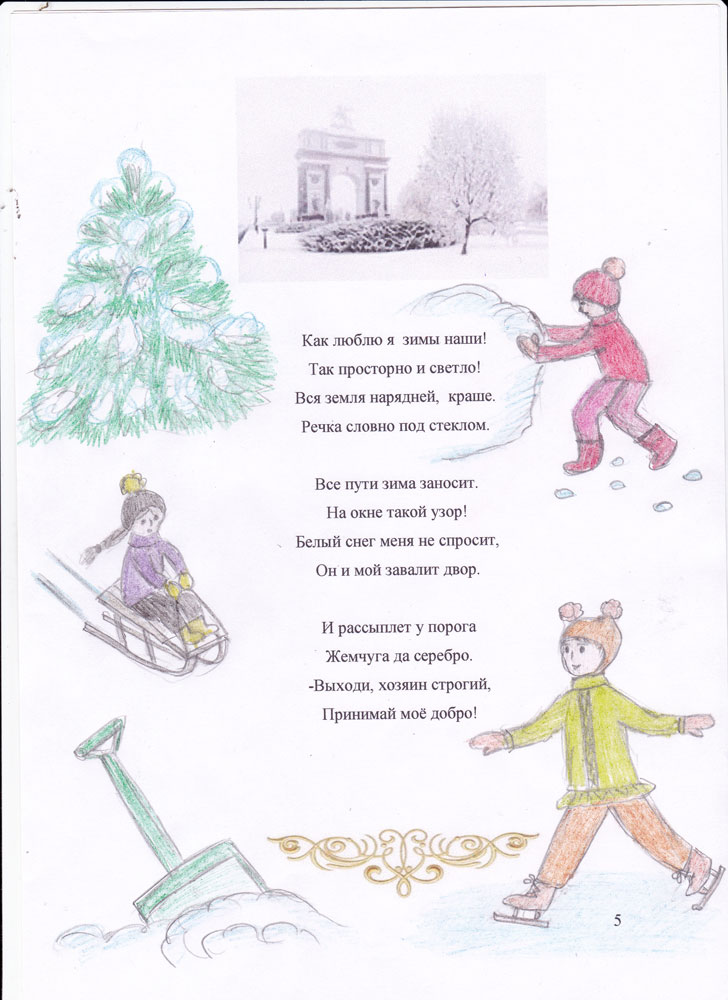 Как люблю я зимы наши!
Так просторно и светло!
Вся земля нарядней, краше.
Речка словно под стеклом.
Все пути зима заносит.
На окне такой узор!
Белый снег меня не спросит,
Он и мой завалит двор.
И рассыплет у порога
Жемчуга да серебро.
-Выходи, хозяин строгий,
Принимай моё добро!
5